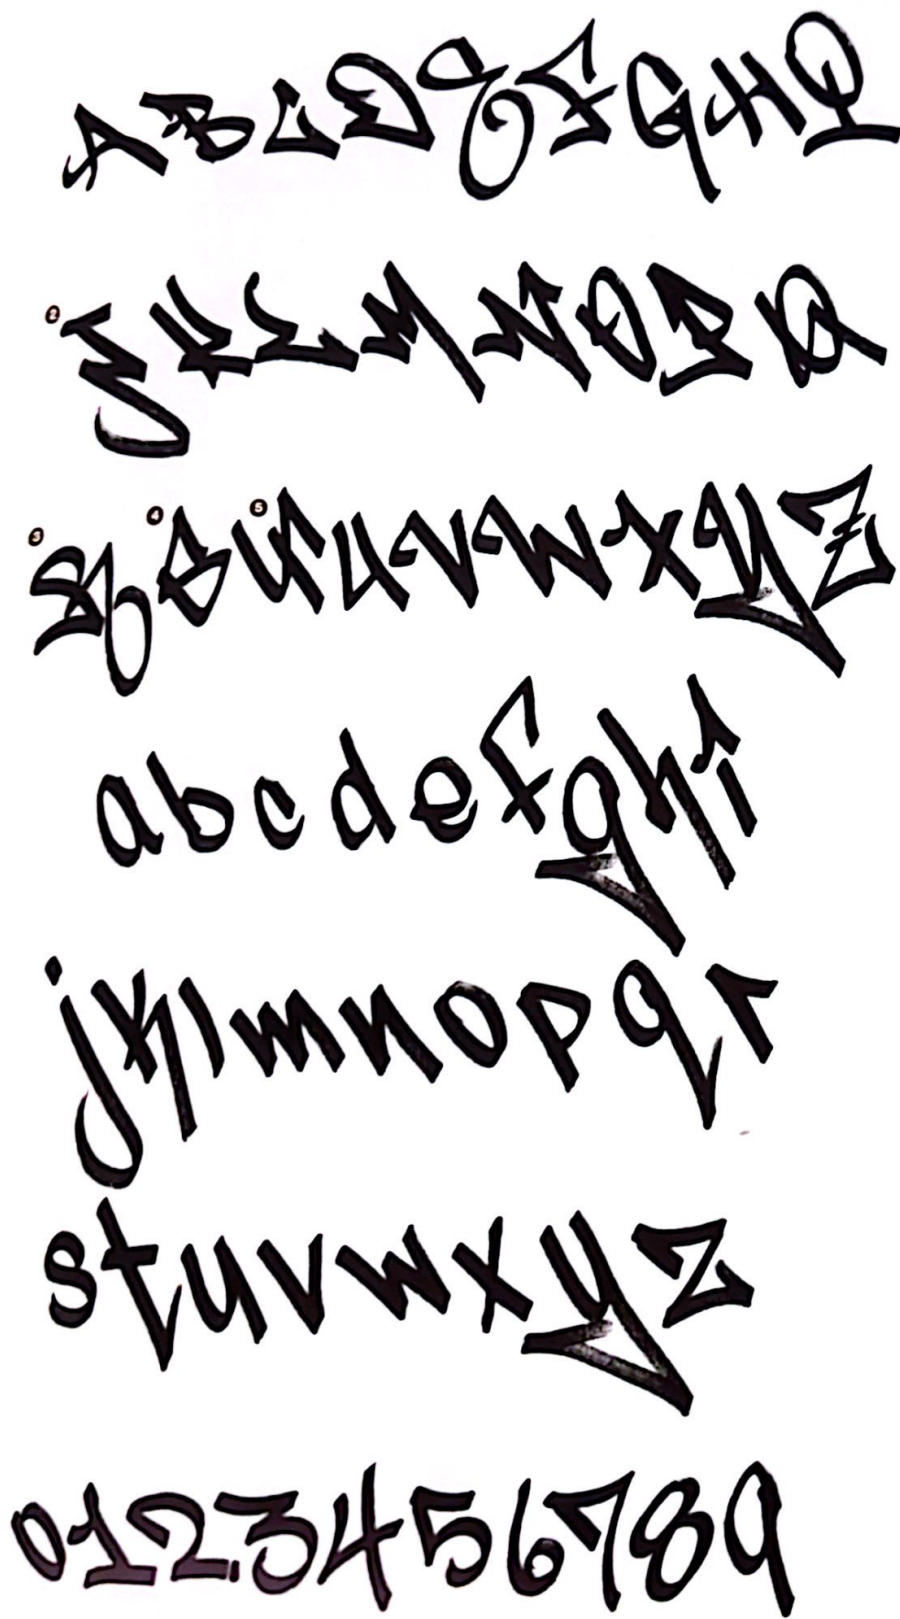 ABCDEFGHI
2 JKLMNOPQ
3 R 4 S 5 TUVWXYZ
abcdefghi
jklmnopqr
stuvwxyz
0123456789